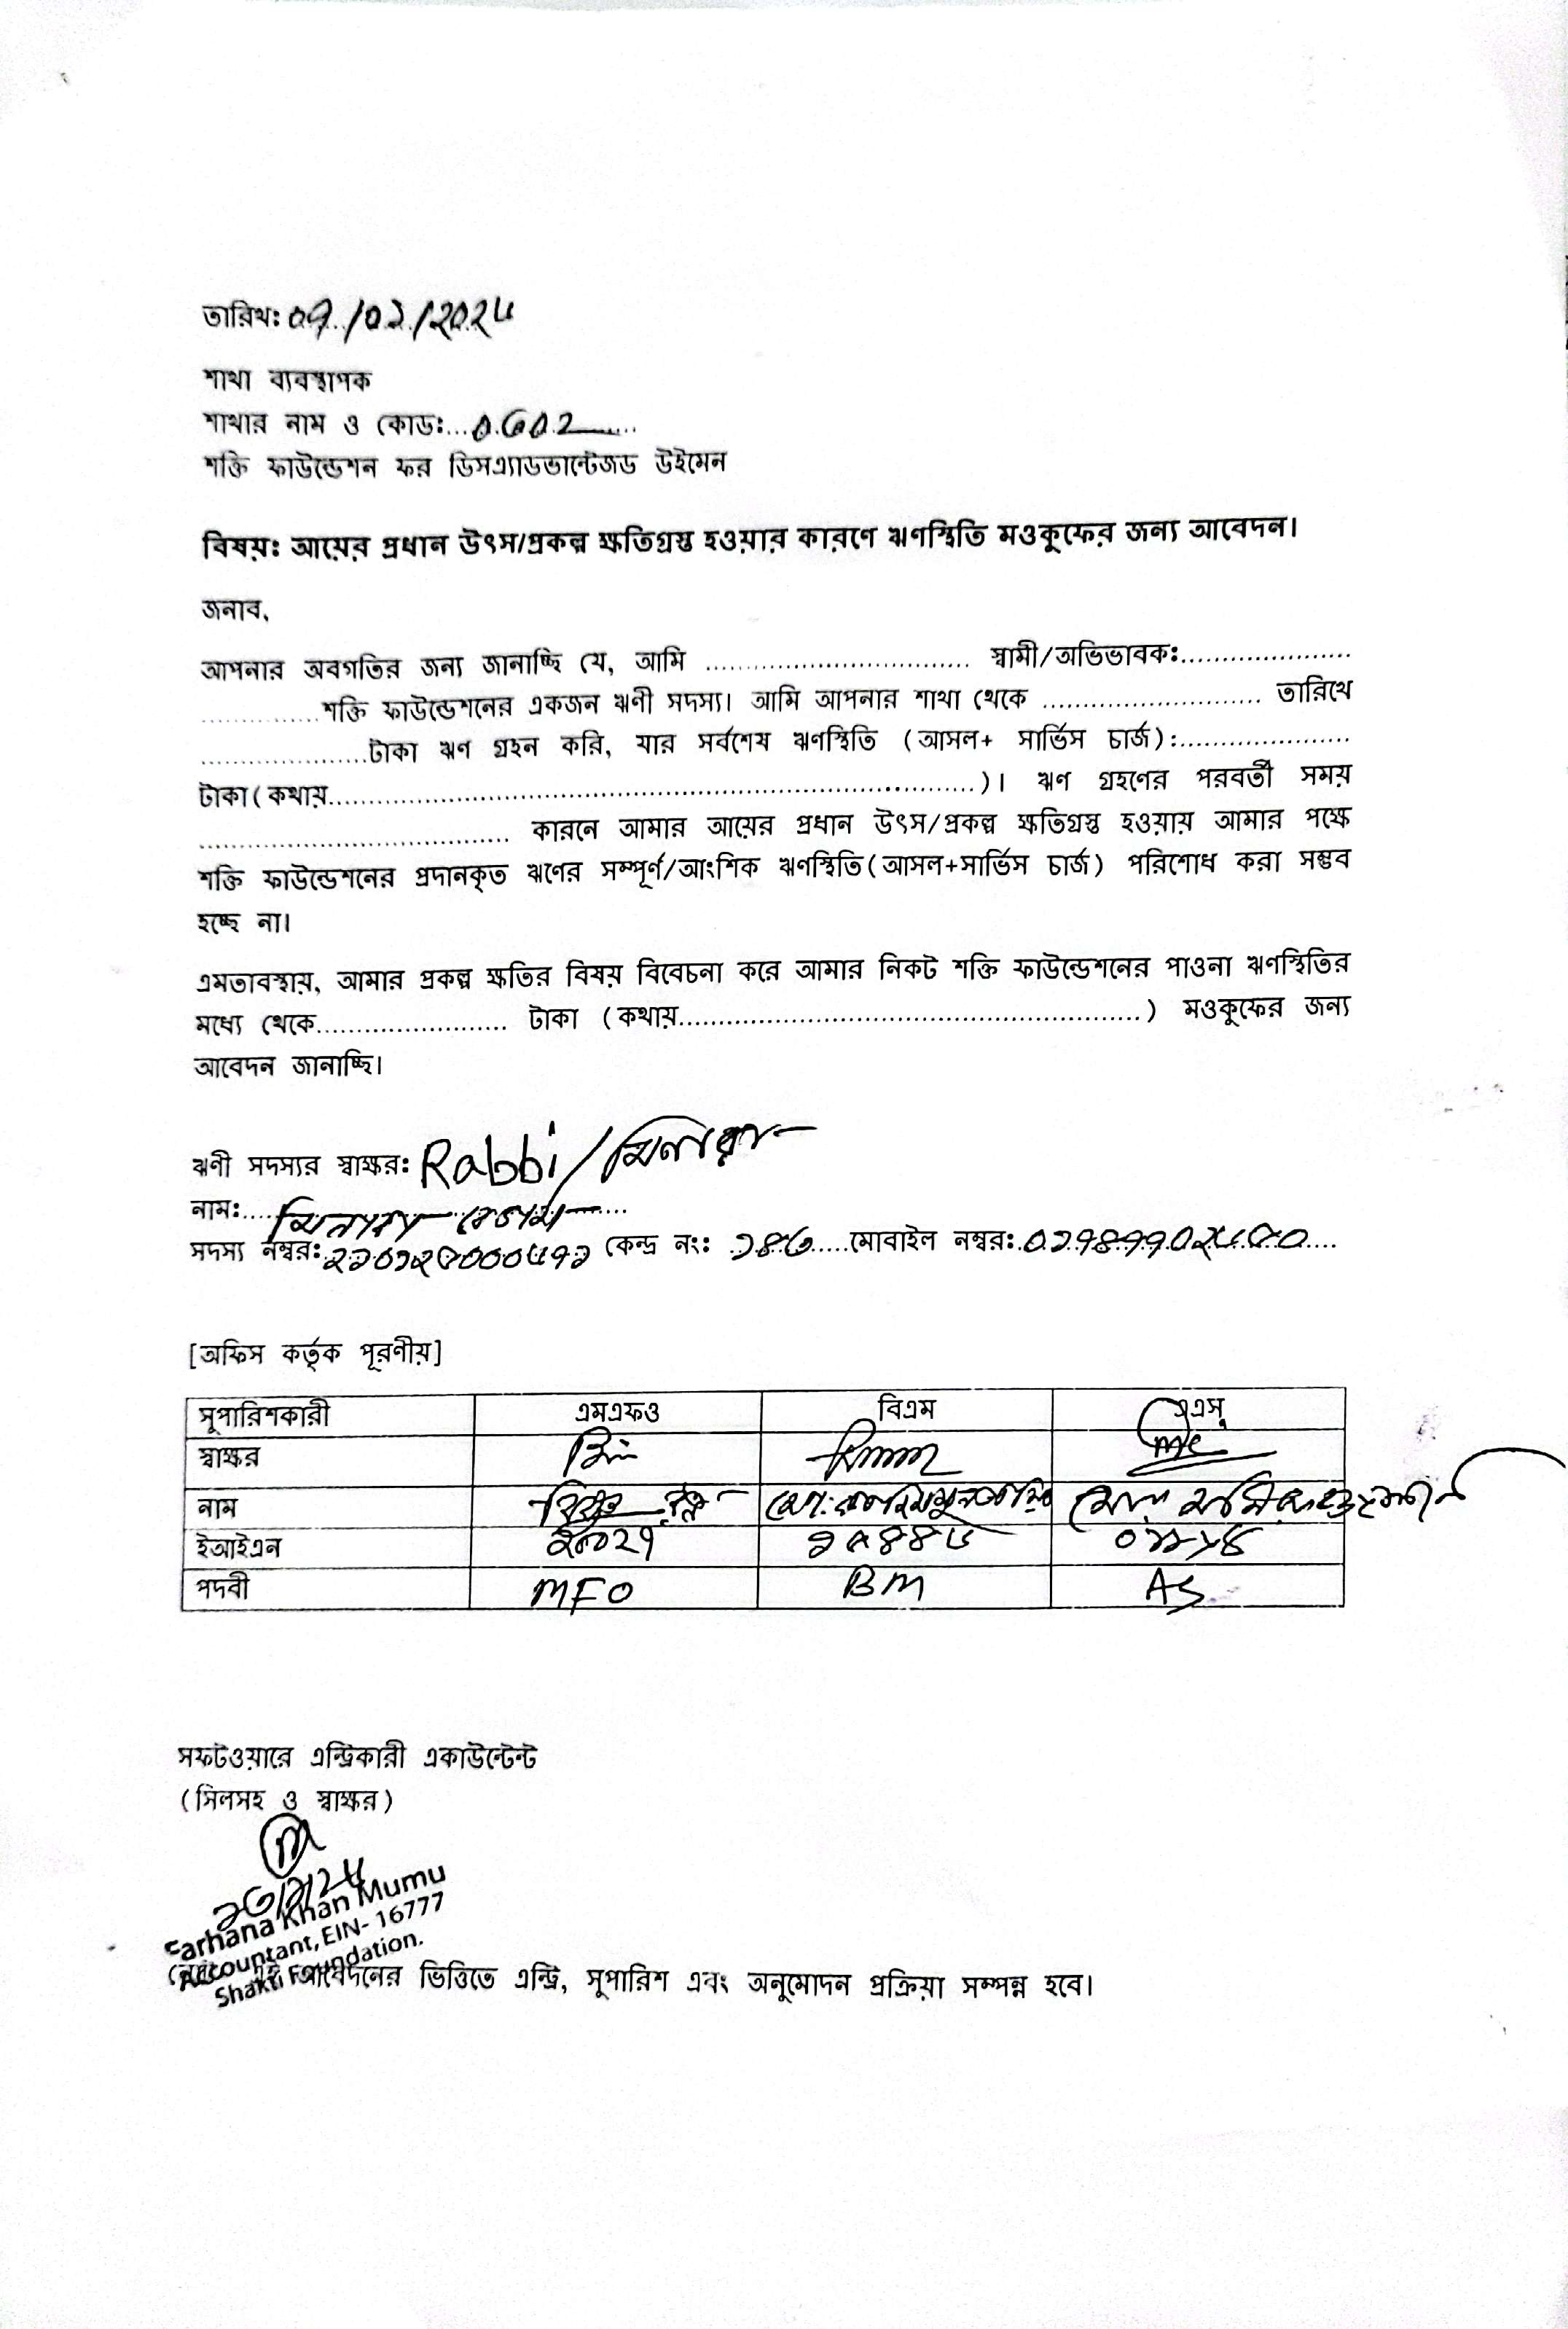 তারিখঃ ০৭/০১/২০২৫
শাখা ব্যবস্থাপক
শাখার নাম ও কোডঃ...০৬০২......
শক্তি ফাউন্ডেশন ফর ডিসএ্যাডভান্টেজড উইমেন
বিষয়ঃ আয়ের প্রধান উৎস/প্রকল্প ক্ষতিগ্রস্ত হওয়ার কারণে ঋণস্থিতি মওকুফের জন্য আবেদন।
জনাব,
আপনার অবগতির জন্য জানাচ্ছি যে, আমি ................................ স্বামী/অভিভাবকঃ.....................
...............শক্তি ফাউন্ডেশনের একজন ঋণী সদস্য। আমি আপনার শাখা থেকে ........................... তারিখে
.....................টাকা ঋণ গ্রহন করি, যার সর্বশেষ ঋণস্থিতি (আসল+ সার্ভিস চার্জ):.....................
টাকা(কথায়................................................................................)। ঋণ গ্রহণের পরবর্তী সময়
...................................... কারনে আমার আয়ের প্রধান উৎস/প্রকল্প ক্ষতিগ্রস্ত হওয়ায় আমার পক্ষে
শক্তি ফাউন্ডেশনের প্রদানকৃত ঋণের সম্পূর্ণ/আংশিক ঋণস্থিতি(আসল+সার্ভিস চার্জ) পরিশোধ করা সম্ভব
হচ্ছে না।
এমতাবস্থায়, আমার প্রকল্প ক্ষতির বিষয় বিবেচনা করে আমার নিকট শক্তি ফাউন্ডেশনের পাওনা ঋণস্থিতির
মধ্যে থেকে........................ টাকা (কথায়.........................................................) মওকুফের জন্য
আবেদন জানাচ্ছি।
ঋণী সদস্যর স্বাক্ষরঃ Rabbi/মিনারা
নামঃ....মিনারা বেগম....
সদস্য নম্বরঃ কেন্দ্র নংঃ ১৪৬.....মোবাইল নম্বরঃ
[অফিস কর্তৃক পূরণীয়]
সুপারিশকারী এমএফও বিএম এএস
স্বাক্ষর
নাম
ইআইএন
পদবী MFO BM AS
সফটওয়ারে এন্ট্রিকারী একাউন্টেন্ট
(সিলসহ ও স্বাক্ষর)
Farhana Khan Mumu
Accountant, EIN- 16777
Shakti Foundation.
আবেদনের ভিত্তিতে এন্ট্রি, সুপারিশ এবং অনুমোদন প্রক্রিয়া সম্পন্ন হবে।